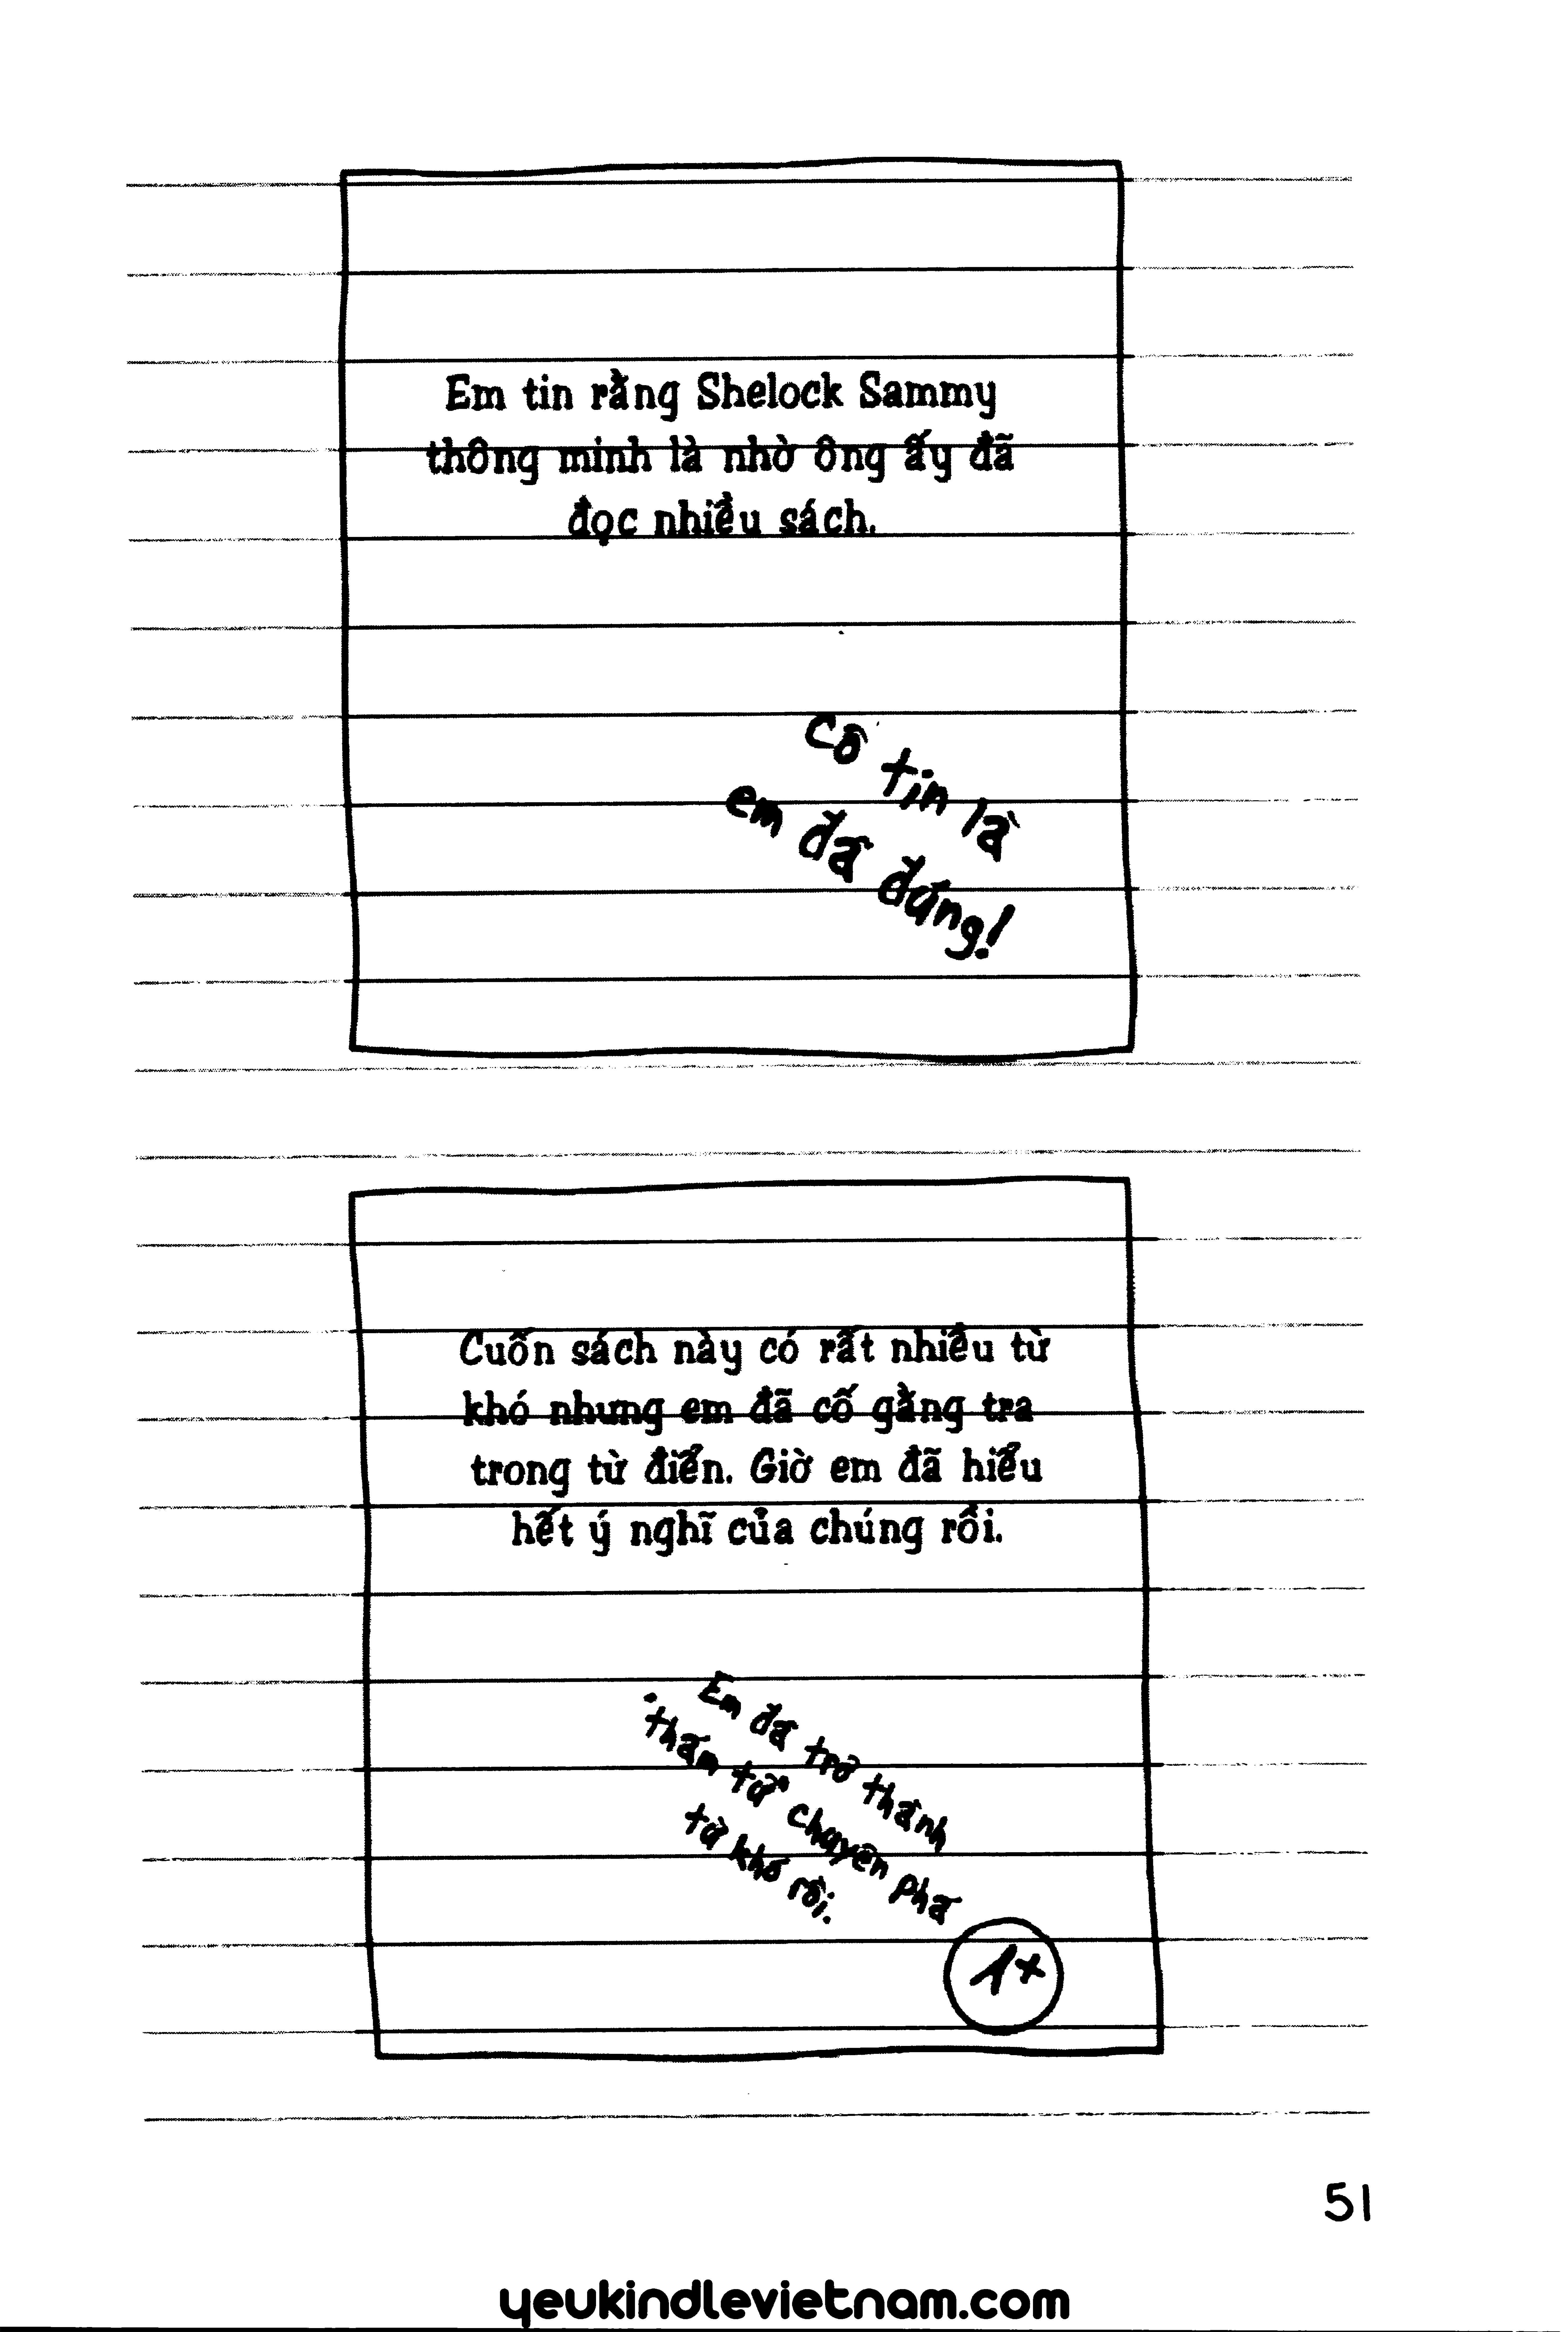 Em tin rằng Shelock Sammy
thông minh là nhờ ông ấy đã
đọc nhiều sách.
Cô tin là
em đã đúng!
Cuốn sách này có rất nhiều từ
khó nhưng em đã cố gắng tra
trong từ điển. Giờ em đã hiểu
hết ý nghĩ của chúng rồi.
Em đã trở thành
thám tử chuyên phá
từ khó rồi.
1+
51
yeukindlevietnam.com